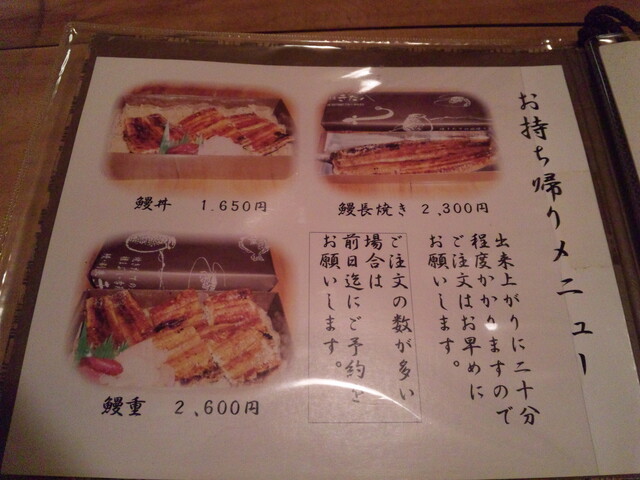 お持ち帰りメニュー
鰻丼 1.650円
鰻長焼き 2,300円
鰻重 2,600円
出来上がりに二十分
程度かかりますので
ご注文はお早めに
お願いします。
ご注文の数が多い
場合は
前日迄にご予約を
お願いします。